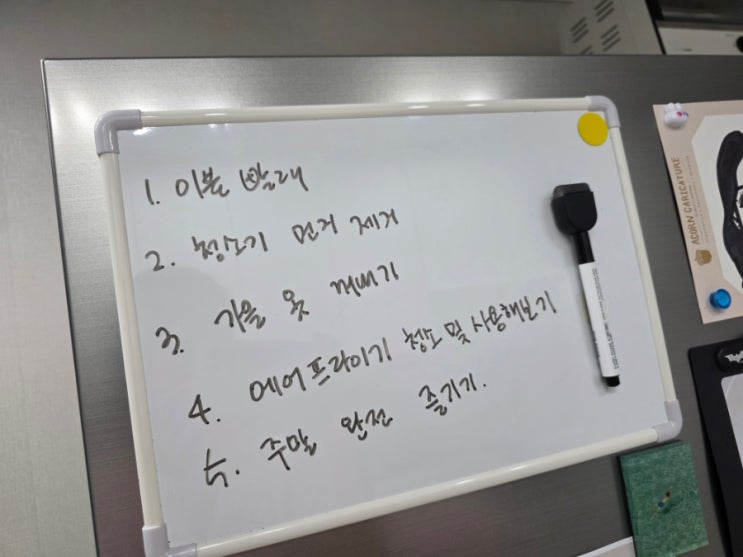 1. 이불 빨래
2. 청소기 먼지 제거
3. 가을 옷 꺼내기
4. 에어프라이기 청소 및 사용해보기
5. 주말 완전 즐기기.
ACORN CARICATURE